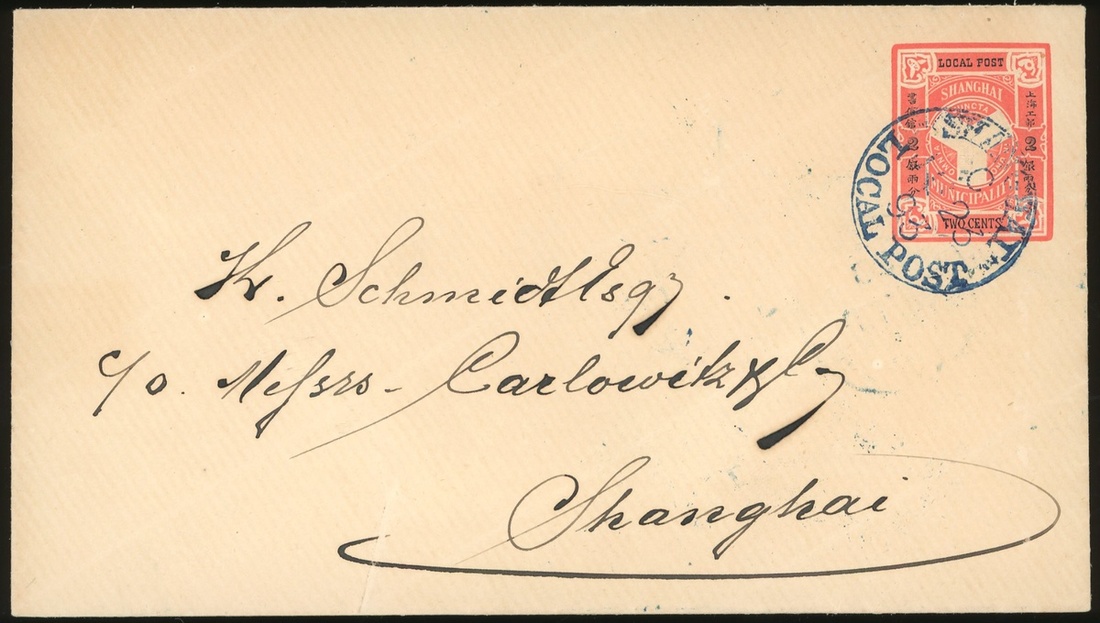 LOCAL POST
SHANGHAI
JUNCTA
MUNICIPALITY
TWO CENTS
上海工部
書信館
2
2
銀兩分
LOCAL POST
93
K. Schmidt Esqr.
c/o. Messrs- Carlowitz & Co
Shanghai